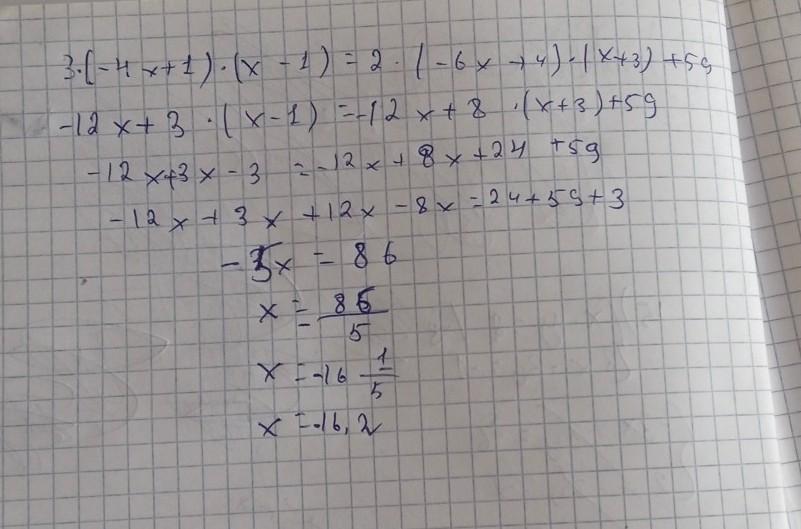 3·(-4x+1)·(x-1)=2·(-6x+4)·(x+3)+59
-12x+3·(x-1)=-12x+8·(x+3)+59
-12x+3x-3=-12x+8x+24+59
-12x+3x+12x-8x=24+59+3
-5x=86
x=-86/5
x=-16 1/5
x=-16,2